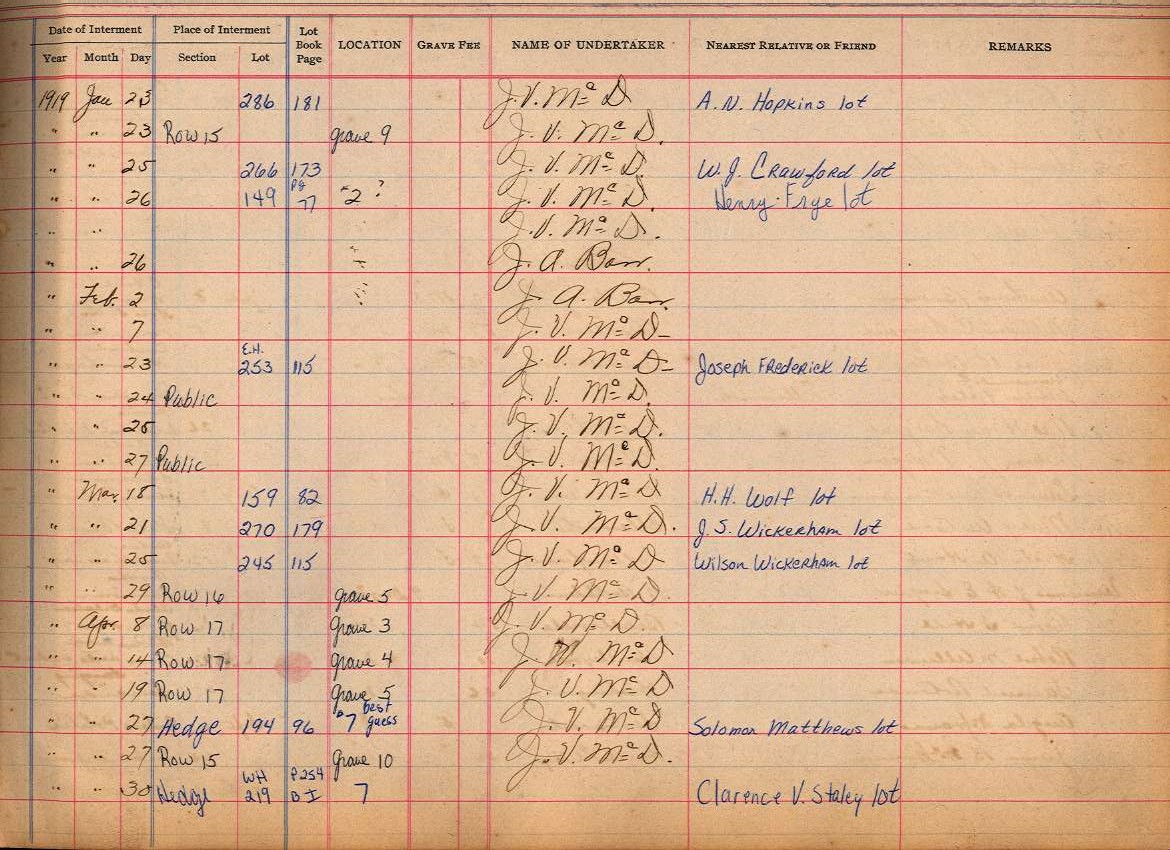 Date of Interment Place of Interment Lot Book Page LOCATION GRAVE FEE NAME OF UNDERTAKER NEAREST RELATIVE OR FRIEND REMARKS
Year Month Day Section Lot
1919 Jan 23 286 181 J. V. McD A. N. Hopkins lot
" " 23 Row 15 grave 9 J. V. McD.
" " 25 266 173 J. V. McD. W. J. Crawford lot
" " 26 149 Pg 77 "2 ? J. V. McD. Henry Frye lot
" " J. V. McD.
" " 26 J. A. Barr.
" Feb. 2 J. A. Barr.
" " 7 J. V. McD-
" " 23 E.H. 253 115 J. V. McD- Joseph Frederick lot
" " 24 Public J. V. McD.
" " 25 J. V. McD.
" " 27 Public J. V. McD.
" Mar. 18 159 82 J. V. McD H. H. Wolf lot
" " 21 270 179 J. V. McD. J. S. Wickerham lot
" " 25 245 115 J. V. McD Wilson Wickerham lot
" " 29 Row 16 grave 5 J. V. McD.
" Apr. 8 Row 17 grave 3 J. V. McD.
" " 14 Row 17 grave 4 J. W. McD
" " 19 Row 17 grave 5 J. V. McD
" " 27 Hedge 194 96 "7 best guess J. V. McD Solomon Matthews lot
" " 27 Row 15 grave 10 J. V. McD.
" " 30 Hedge WH 219 P254 B I 7 Clarence V. Staley lot